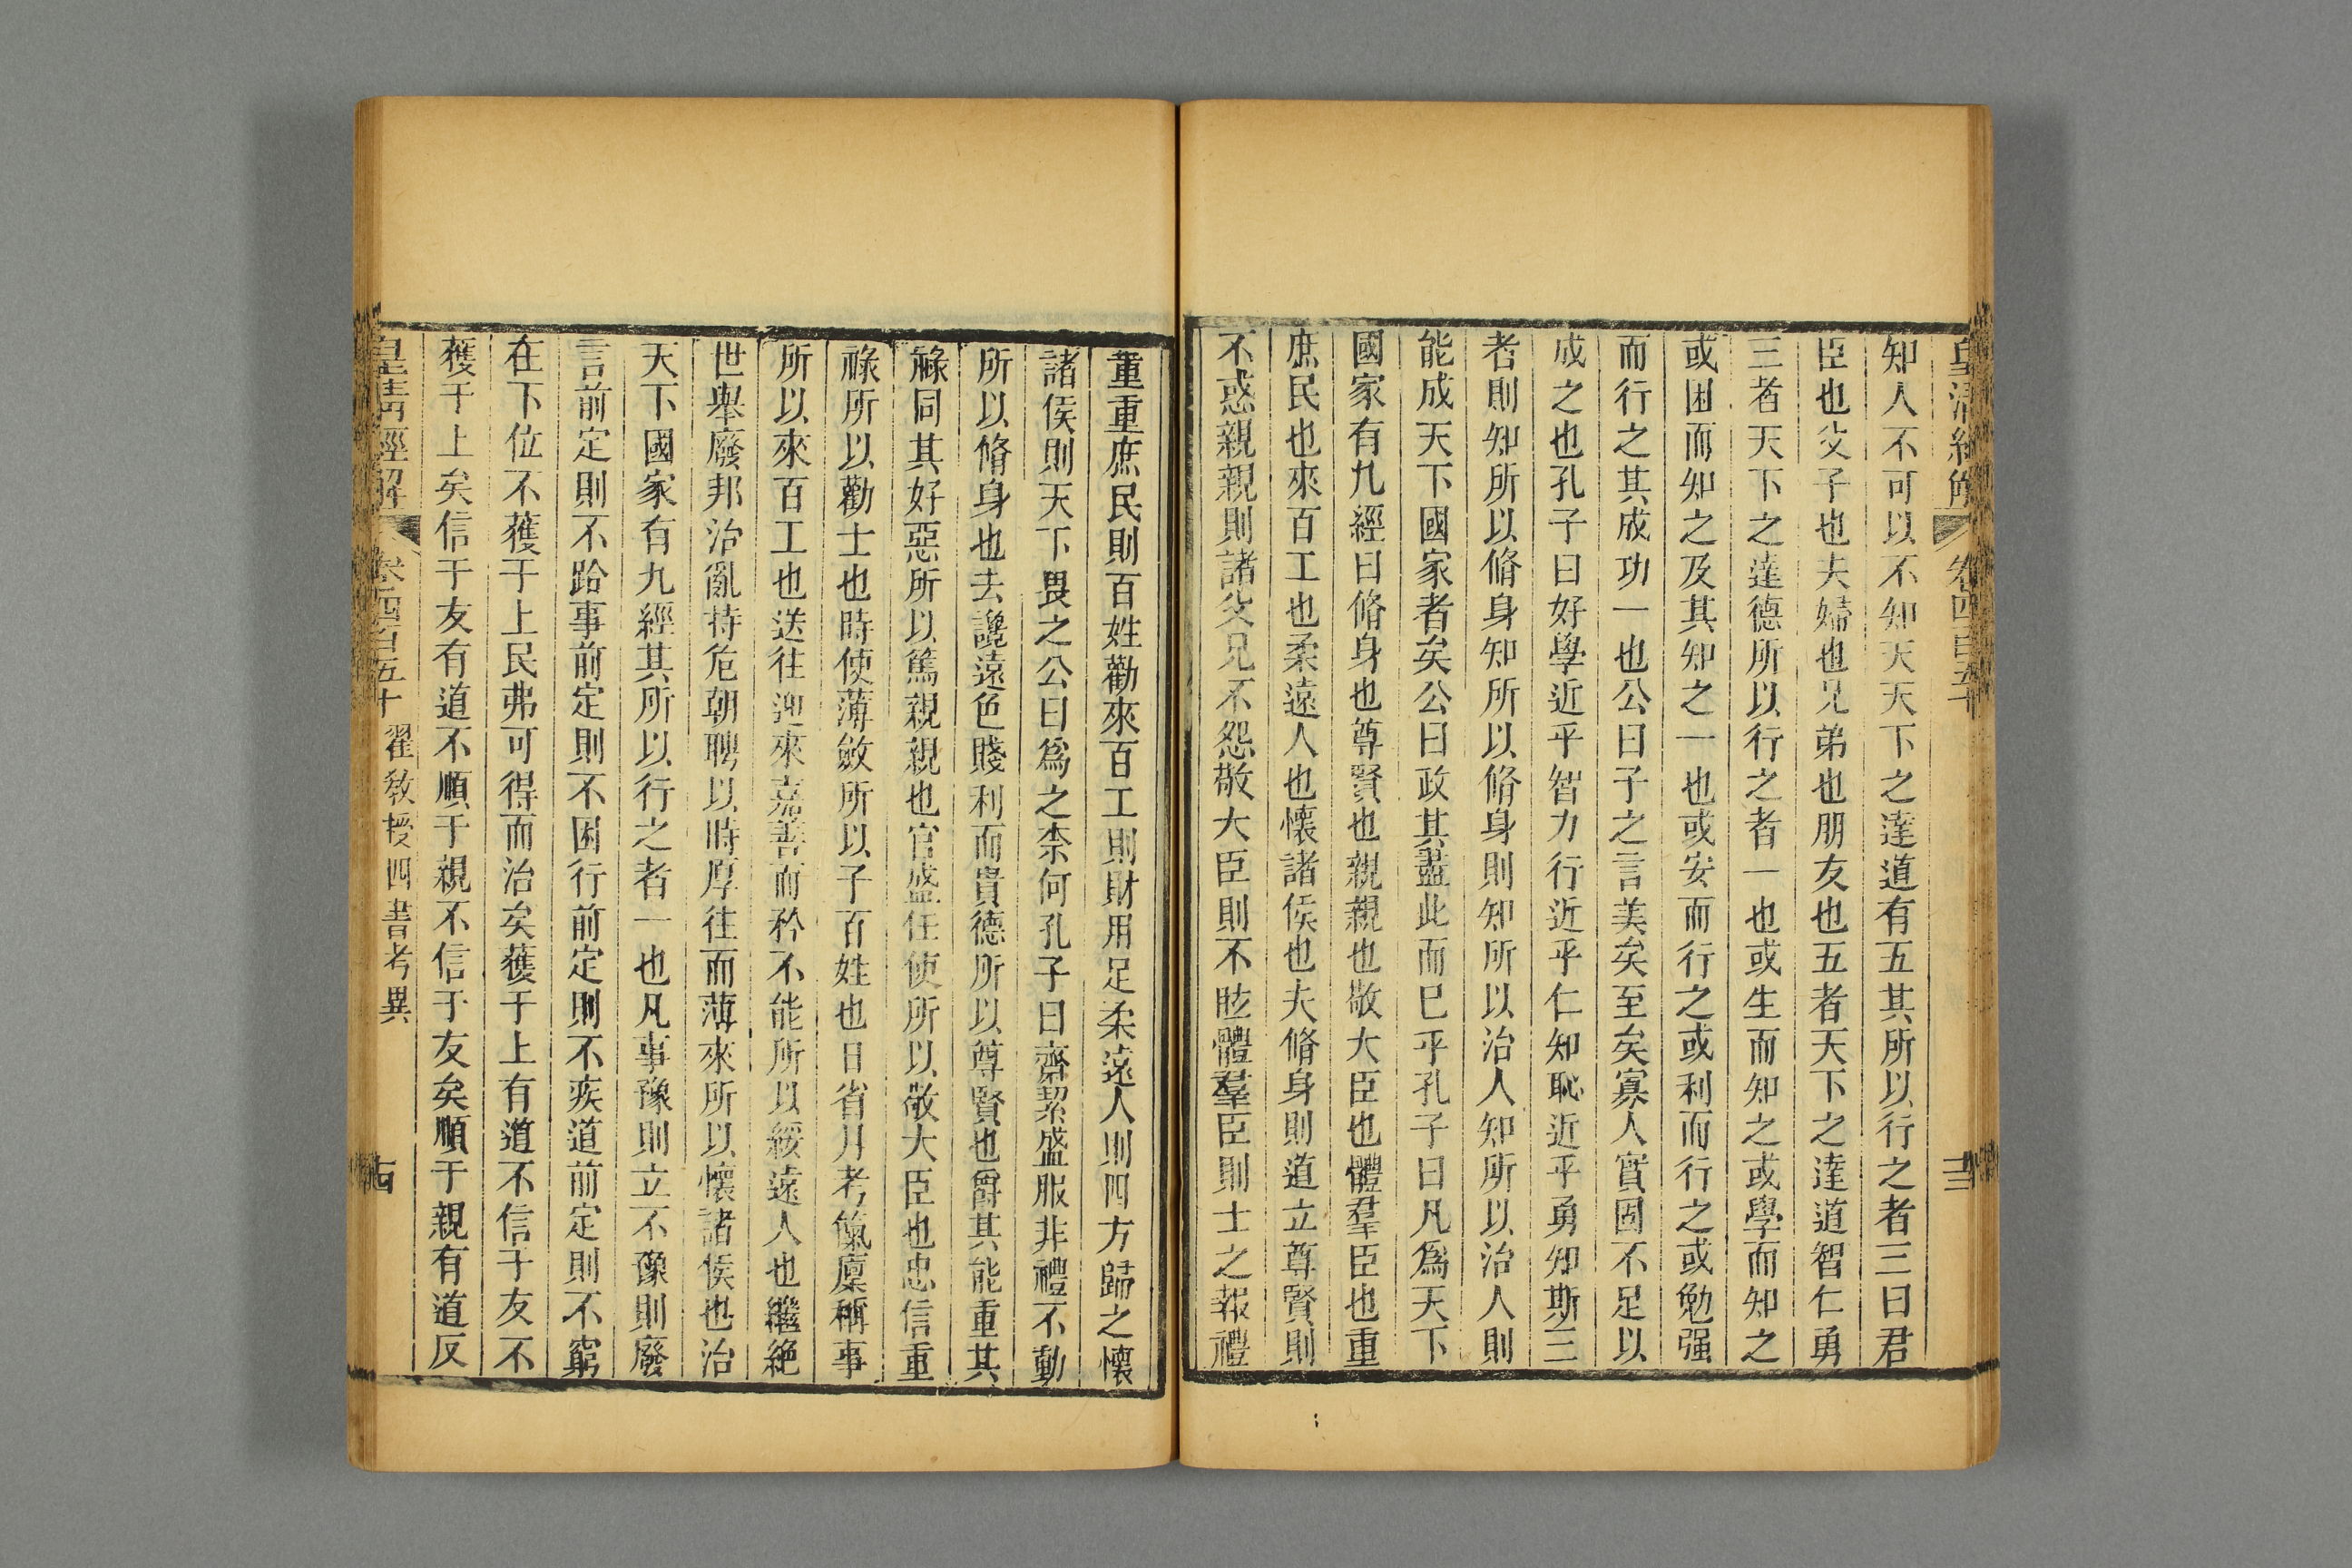 皇清經解 卷四百五十 十三
知人不可以不知天天下之達道有五其所以行之者三曰君
臣也父子也夫婦也兄弟也朋友也五者天下之達道智仁勇
三者天下之達德所以行之者一也或生而知之或學而知之
或困而知之及其知之一也或安而行之或利而行之或勉强
而行之其成功一也公曰子之言美矣至矣寡人實固不足以
成之也孔子曰好學近乎智力行近乎仁知恥近乎勇知斯三
者則知所以脩身知所以脩身則知所以治人知所以治人則
能成天下國家者矣公曰政其盡此而已乎孔子曰凡爲天下
國家有九經曰脩身也尊賢也親親也敬大臣也體羣臣也重
庶民也來百工也柔遠人也懷諸侯也夫脩身則道立尊賢則
不惑親親則諸父兄不怨敬大臣則不眩體羣臣則士之報禮
重重庶民則百姓勸來百工則財用足柔遠人則四方歸之懷
諸侯則天下畏之公曰爲之柰何孔子曰齊絜盛服非禮不動
所以脩身也去讒遠色賤利而貴德所以尊賢也爵其能重其
祿同其好惡所以篤親親也官盛任使所以敬大臣也忠信重
祿所以勸士也時使薄斂所以子百姓也日省月考餼廩稱事
所以來百工也送往迎來嘉善而矜不能所以綏遠人也繼絶
世舉廢邦治亂持危朝聘以時厚往而薄來所以懷諸侯也治
天下國家有九經其所以行之者一也凡事豫則立不豫則廢
言前定則不跲事前定則不困行前定則不疚道前定則不窮
在下位不獲于上民弗可得而治矣獲于上有道不信于友不
獲于上矣信于友有道不順于親不信于友矣順于親有道反
皇清經解 卷四百五十 翟教授四書考異 十四